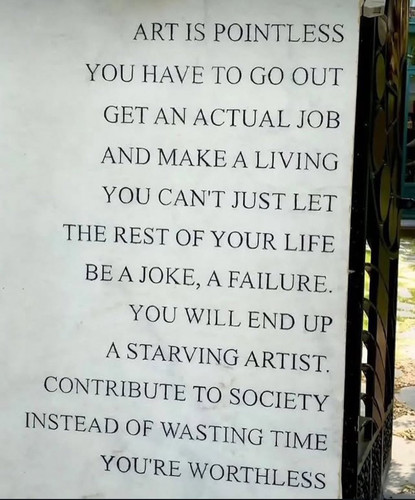 ART IS POINTLESS
YOU HAVE TO GO OUT
GET AN ACTUAL JOB
AND MAKE A LIVING
YOU CAN'T JUST LET
THE REST OF YOUR LIFE
BE A JOKE, A FAILURE.
YOU WILL END UP
A STARVING ARTIST.
CONTRIBUTE TO SOCIETY
INSTEAD OF WASTING TIME
YOU'RE WORTHLESS